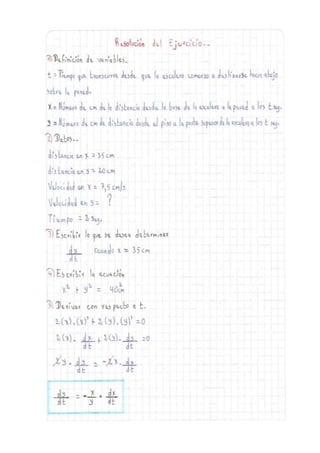 Resolución del Ejercicio..
1) Definición de variables.
t = Tiempo que transcurre desde que la escalera comenzo a deslizarse hacia abajo
sobre la pared.
x = Número de cm de la distancia desde la base de la escalera a la pared a los t seg.
y = Número de cm de distancia desde el piso a la parte superior de la escalera a los t seg.
2) Datos..
distancia en x = 35 cm
distancia en y = 20 cm
Velocidad en x = 7,5 cm/s
Velocidad en y = ?
Tiempo = 2 seg.
3) Escribir lo que se desea determinar
dy/dt cuando x = 35 cm
4) Escribir la ecuación
x² + y² = 40cm²
5) Derivar con respecto a t.
2(x).(x)' + 2(y).(y)' = 0
2(x). dx/dt + 2(y). dy/dt = 0
2y. dy/dt = -2x. dx/dt
dy/dt = -x/y . dx/dt